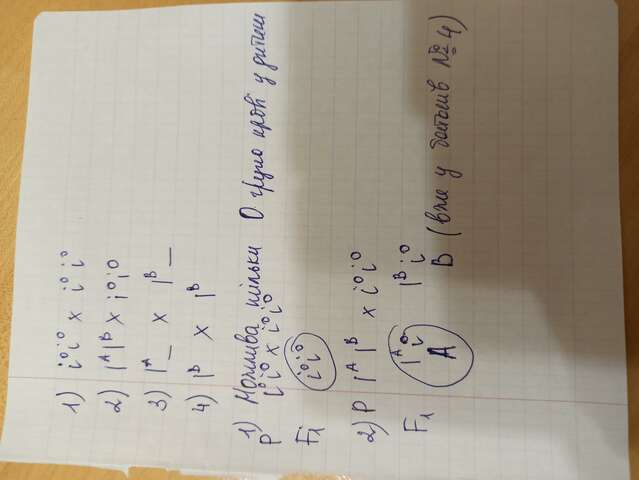 1) i⁰i⁰ x i⁰i⁰
2) IᴬIᴮ x i⁰i⁰
3) Iᴬ_ x Iᴮ_
4) Iᴮ x Iᴮ
1) Можлива тільки О група крові у дитини
P i⁰i⁰ x i⁰i⁰
F₁ i⁰i⁰
2) P IᴬIᴮ x i⁰i⁰
F₁ Iᴬi⁰ Iᴮi⁰
A B (вже у батьків №4)